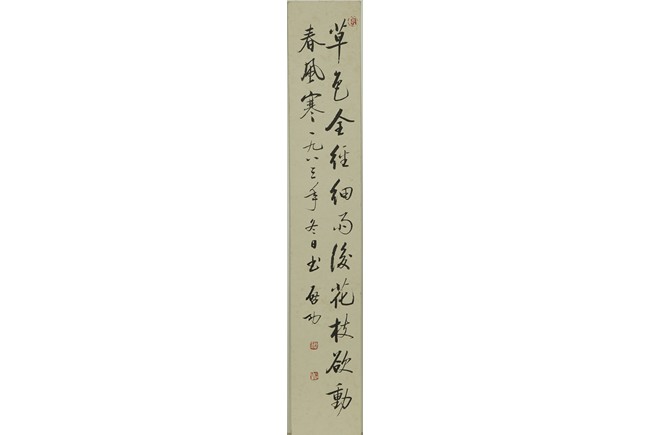 草色全經細雨後花枝欲動
春風寒一九八三年冬日书啓功